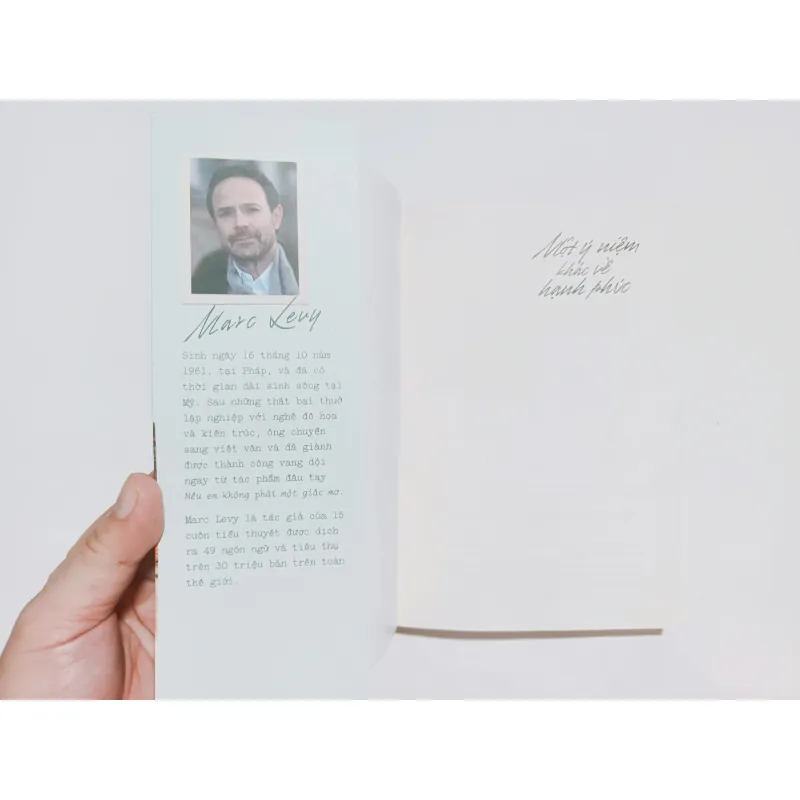 Marc Levy
Sinh ngày 16 tháng 10 năm
1961, tại Pháp, và đã có
thời gian dài sinh sống tại
Mỹ. Sau những thất bại thuở
lập nghiệp với nghề đồ họa
và kiến trúc, ông chuyển
sang viết văn và đã giành
được thành công vang dội
ngay từ tác phẩm đầu tay
Nếu em không phải một giấc mơ.
Marc Levy là tác giả của 15
cuốn tiểu thuyết được dịch
ra 49 ngôn ngữ và tiêu thụ
trên 30 triệu bản trên toàn
thế giới.
Một ý niệm
khác về
hạnh phúc